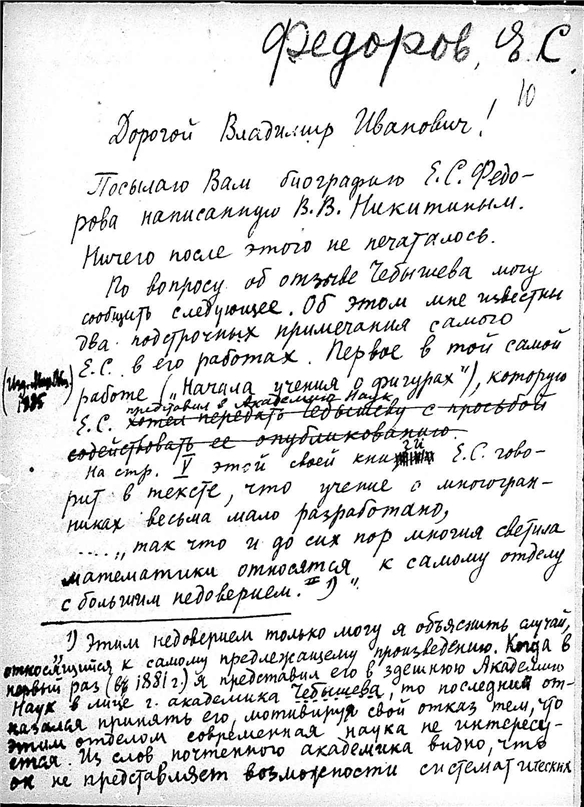 Федоров, Е.С.
10
Дорогой Владимир Иванович!
Посылаю Вам биографию Е.С. Федо-
рова написанную В.В. Никитиным.
Ничего после этого не печаталось.
По вопросу об отзыве Чебышева могу
сообщить следующее. Об этом мне известны
два подстрочных примечания самого
Е.С. в его работах. Первое в той самой
работе („Начала учения о фигурах"), которую
(Изд. Мин. Общ.
1885)
представил в Академию Наук
Е.С. хотел передать Чебышеву с просьбой
содействовать ее опубликованию.
На стр. V этой своей книги Е.С. гово-
рит в тексте, что учение о многогран-
никах весьма мало разработано,
.... „так что и до сих пор многия светила
математики относятся к самому отделу
с большим недоверием." 1) "
1) „Этим недоверием только могу я объяснить случай,
относящийся к самому предлежащему произведению. Когда в
первый раз (в 1881 г.) я представил его в здешнюю Академию
Наук в лице г. академика Чебышева, то последний от-
казался принять его, мотивируя свой отказ тем, что
этим отделом современная наука не интересу-
ется. Из слов почтенного академика видно, что
он не представляет возможности систематических